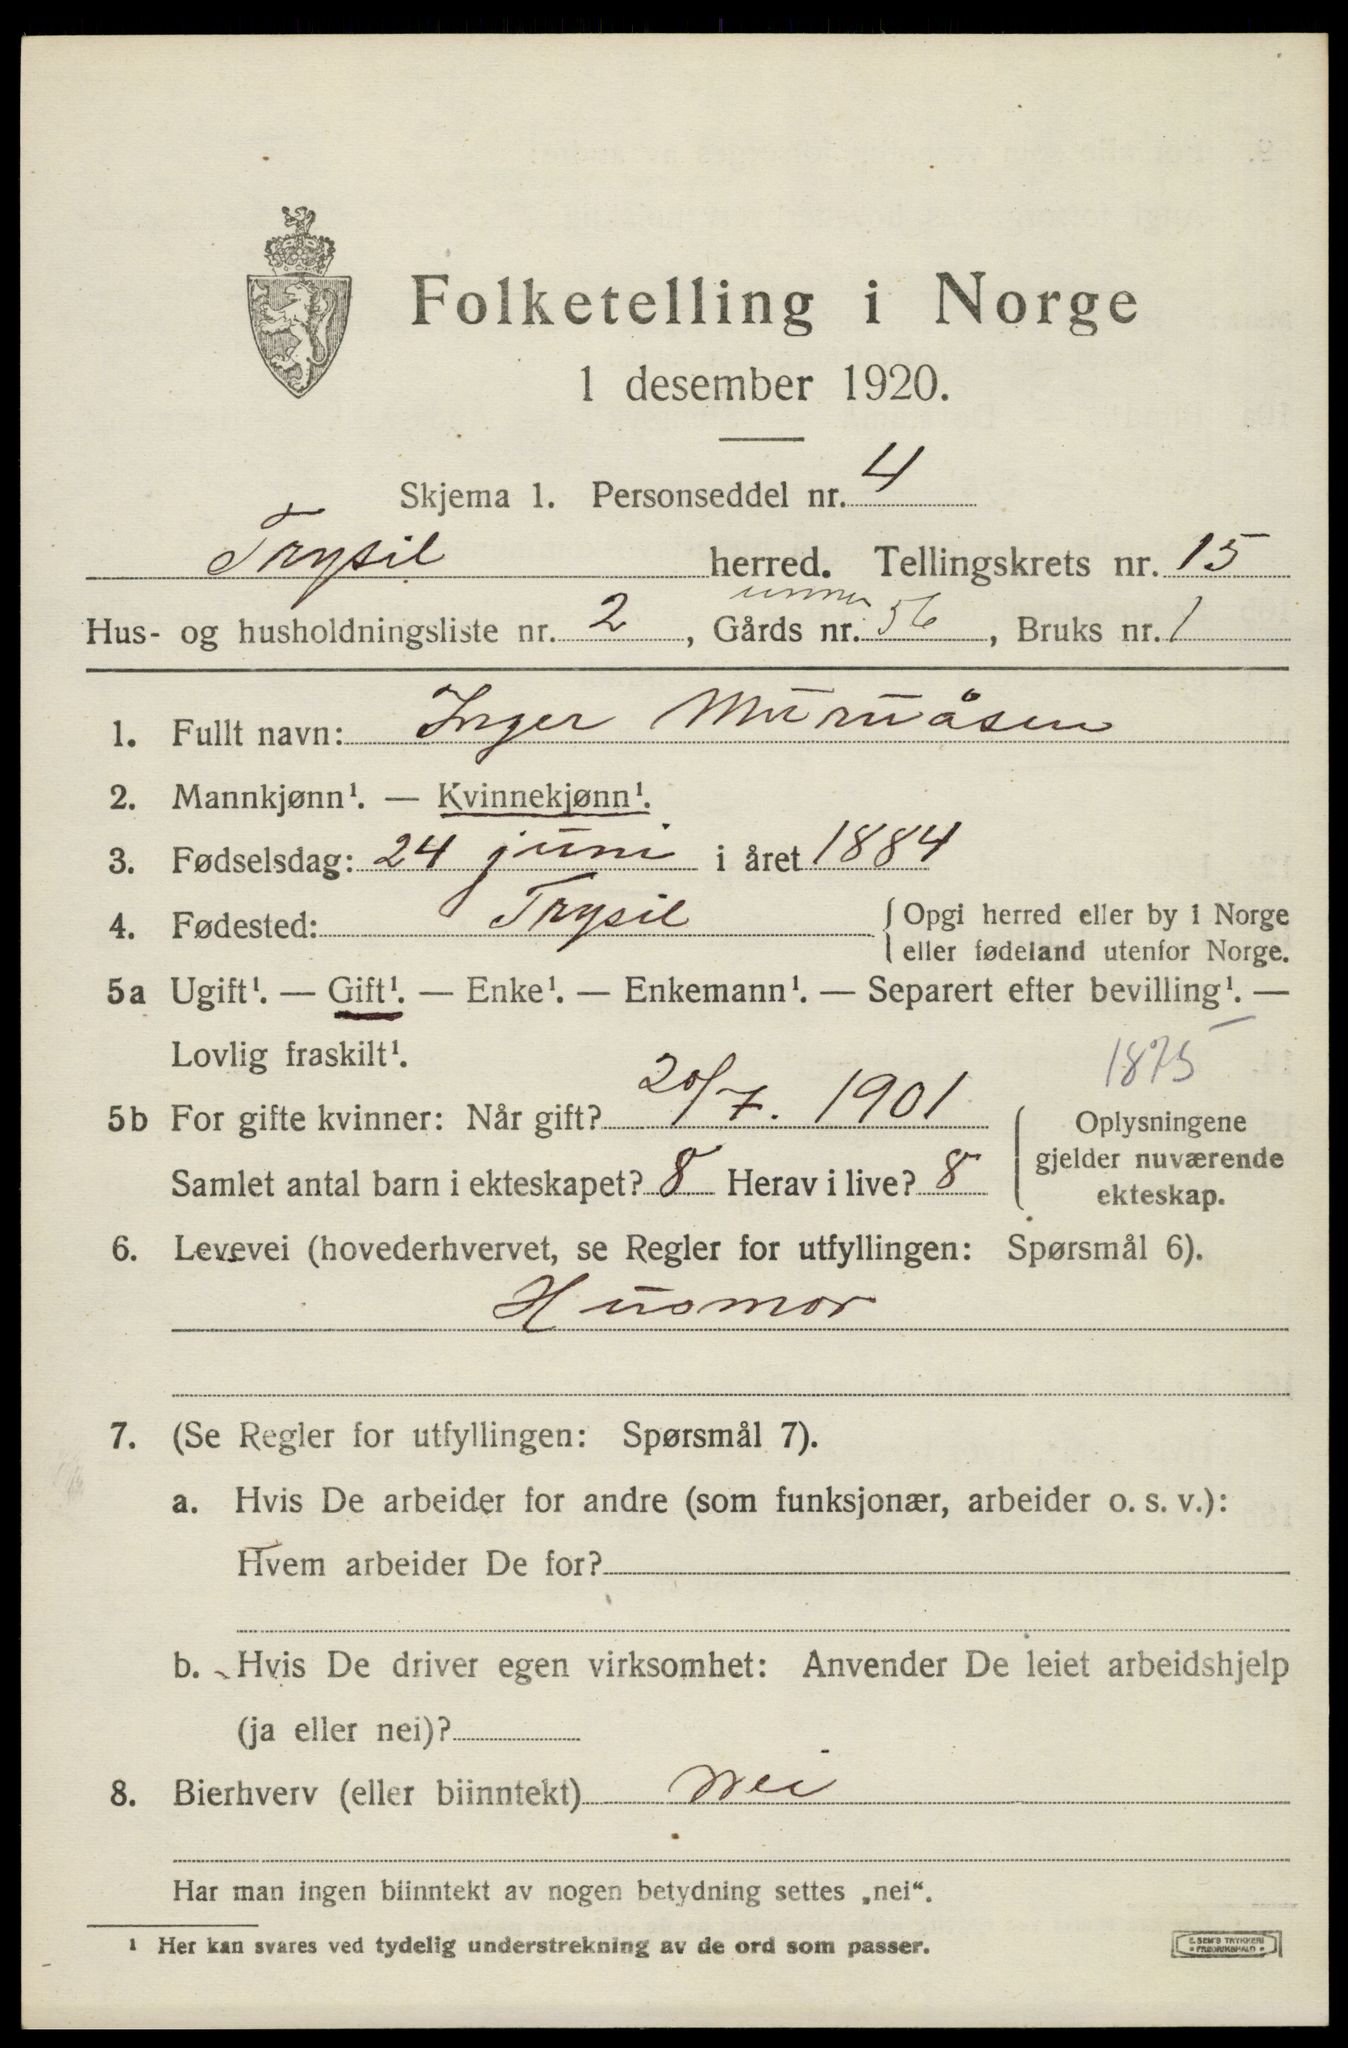 Folketelling i Norge
1 desember 1920.
Skjema 1. Personseddel nr. 4
Trysil herred. Tellingskrets nr. 15
Hus- og husholdningsliste nr. 2, Gårds nr. 56, Bruks nr. 1
1. Fullt navn: Inger Muruåsen
2. Mannkjønn¹. — Kvinnekjønn¹.
3. Fødselsdag: 24 juni i året 1884
4. Fødested: Trysil { Opgi herred eller by i Norge
eller fødeland utenfor Norge.
5a Ugift¹. — Gift¹. — Enke¹. — Enkemann¹. — Separert efter bevilling¹. —
Lovlig fraskilt¹. 1875
5b For gifte kvinner: Når gift? 20/7. 1901 Oplysningene
gjelder nuværende
Samlet antal barn i ekteskapet? 8 Herav i live? 8 ekteskap.
6. Levevei (hovederhvervet, se Regler for utfyllingen: Spørsmål 6).
Husmor
7. (Se Regler for utfyllingen: Spørsmål 7).
a. Hvis De arbeider for andre (som funksjonær, arbeider o. s. v.):
Hvem arbeider De for?
b. Hvis De driver egen virksomhet: Anvender De leiet arbeidshjelp
(ja eller nei)?
8. Bierhverv (eller biinntekt) Nei
Har man ingen biinntekt av nogen betydning settes „nei“.
¹ Her kan svares ved tydelig understrekning av de ord som passer.
E. SEM'S TRYKKERI
• FREDRIKSHALD •